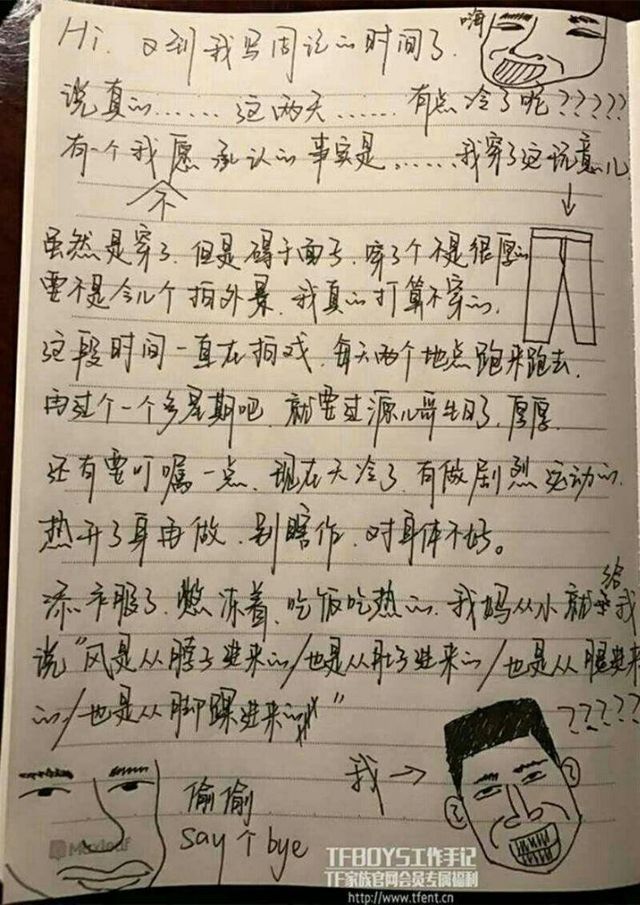 嗨
Hi. 又到我写周记的时间了.
说真的......这两天......有点冷了呢?????
有一个我愿承认的事实是......我穿了这说意儿
不
虽然是穿了.但是碍于面子.穿了个不是很厚的
要不是今儿个拍外景.我真的打算不穿的.
这段时间一直在拍戏.每天两个地点跑来跑去.
再过个一个多星期吧.就要过源儿哥生日了.厚厚.
还有要叮嘱一点.现在天冷了.有做剧烈运动的.
热开了身再做.别瞎作.对身体不好。
添衣服了.憋冻着.吃饭吃热的.我妈从小就给我
说“风是从脖子进来的/也是从肚子进来的/也是从腿进来
的/也是从脚踝进来的”
?????
我→
偷偷
say个bye
Maxleaf
TFBOYS工作手记
TF家族官网会员专属福利
http://www.tfent.cn